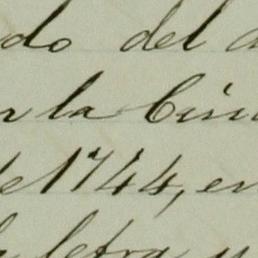 do del
la Ciu
de 1744, en
letra y